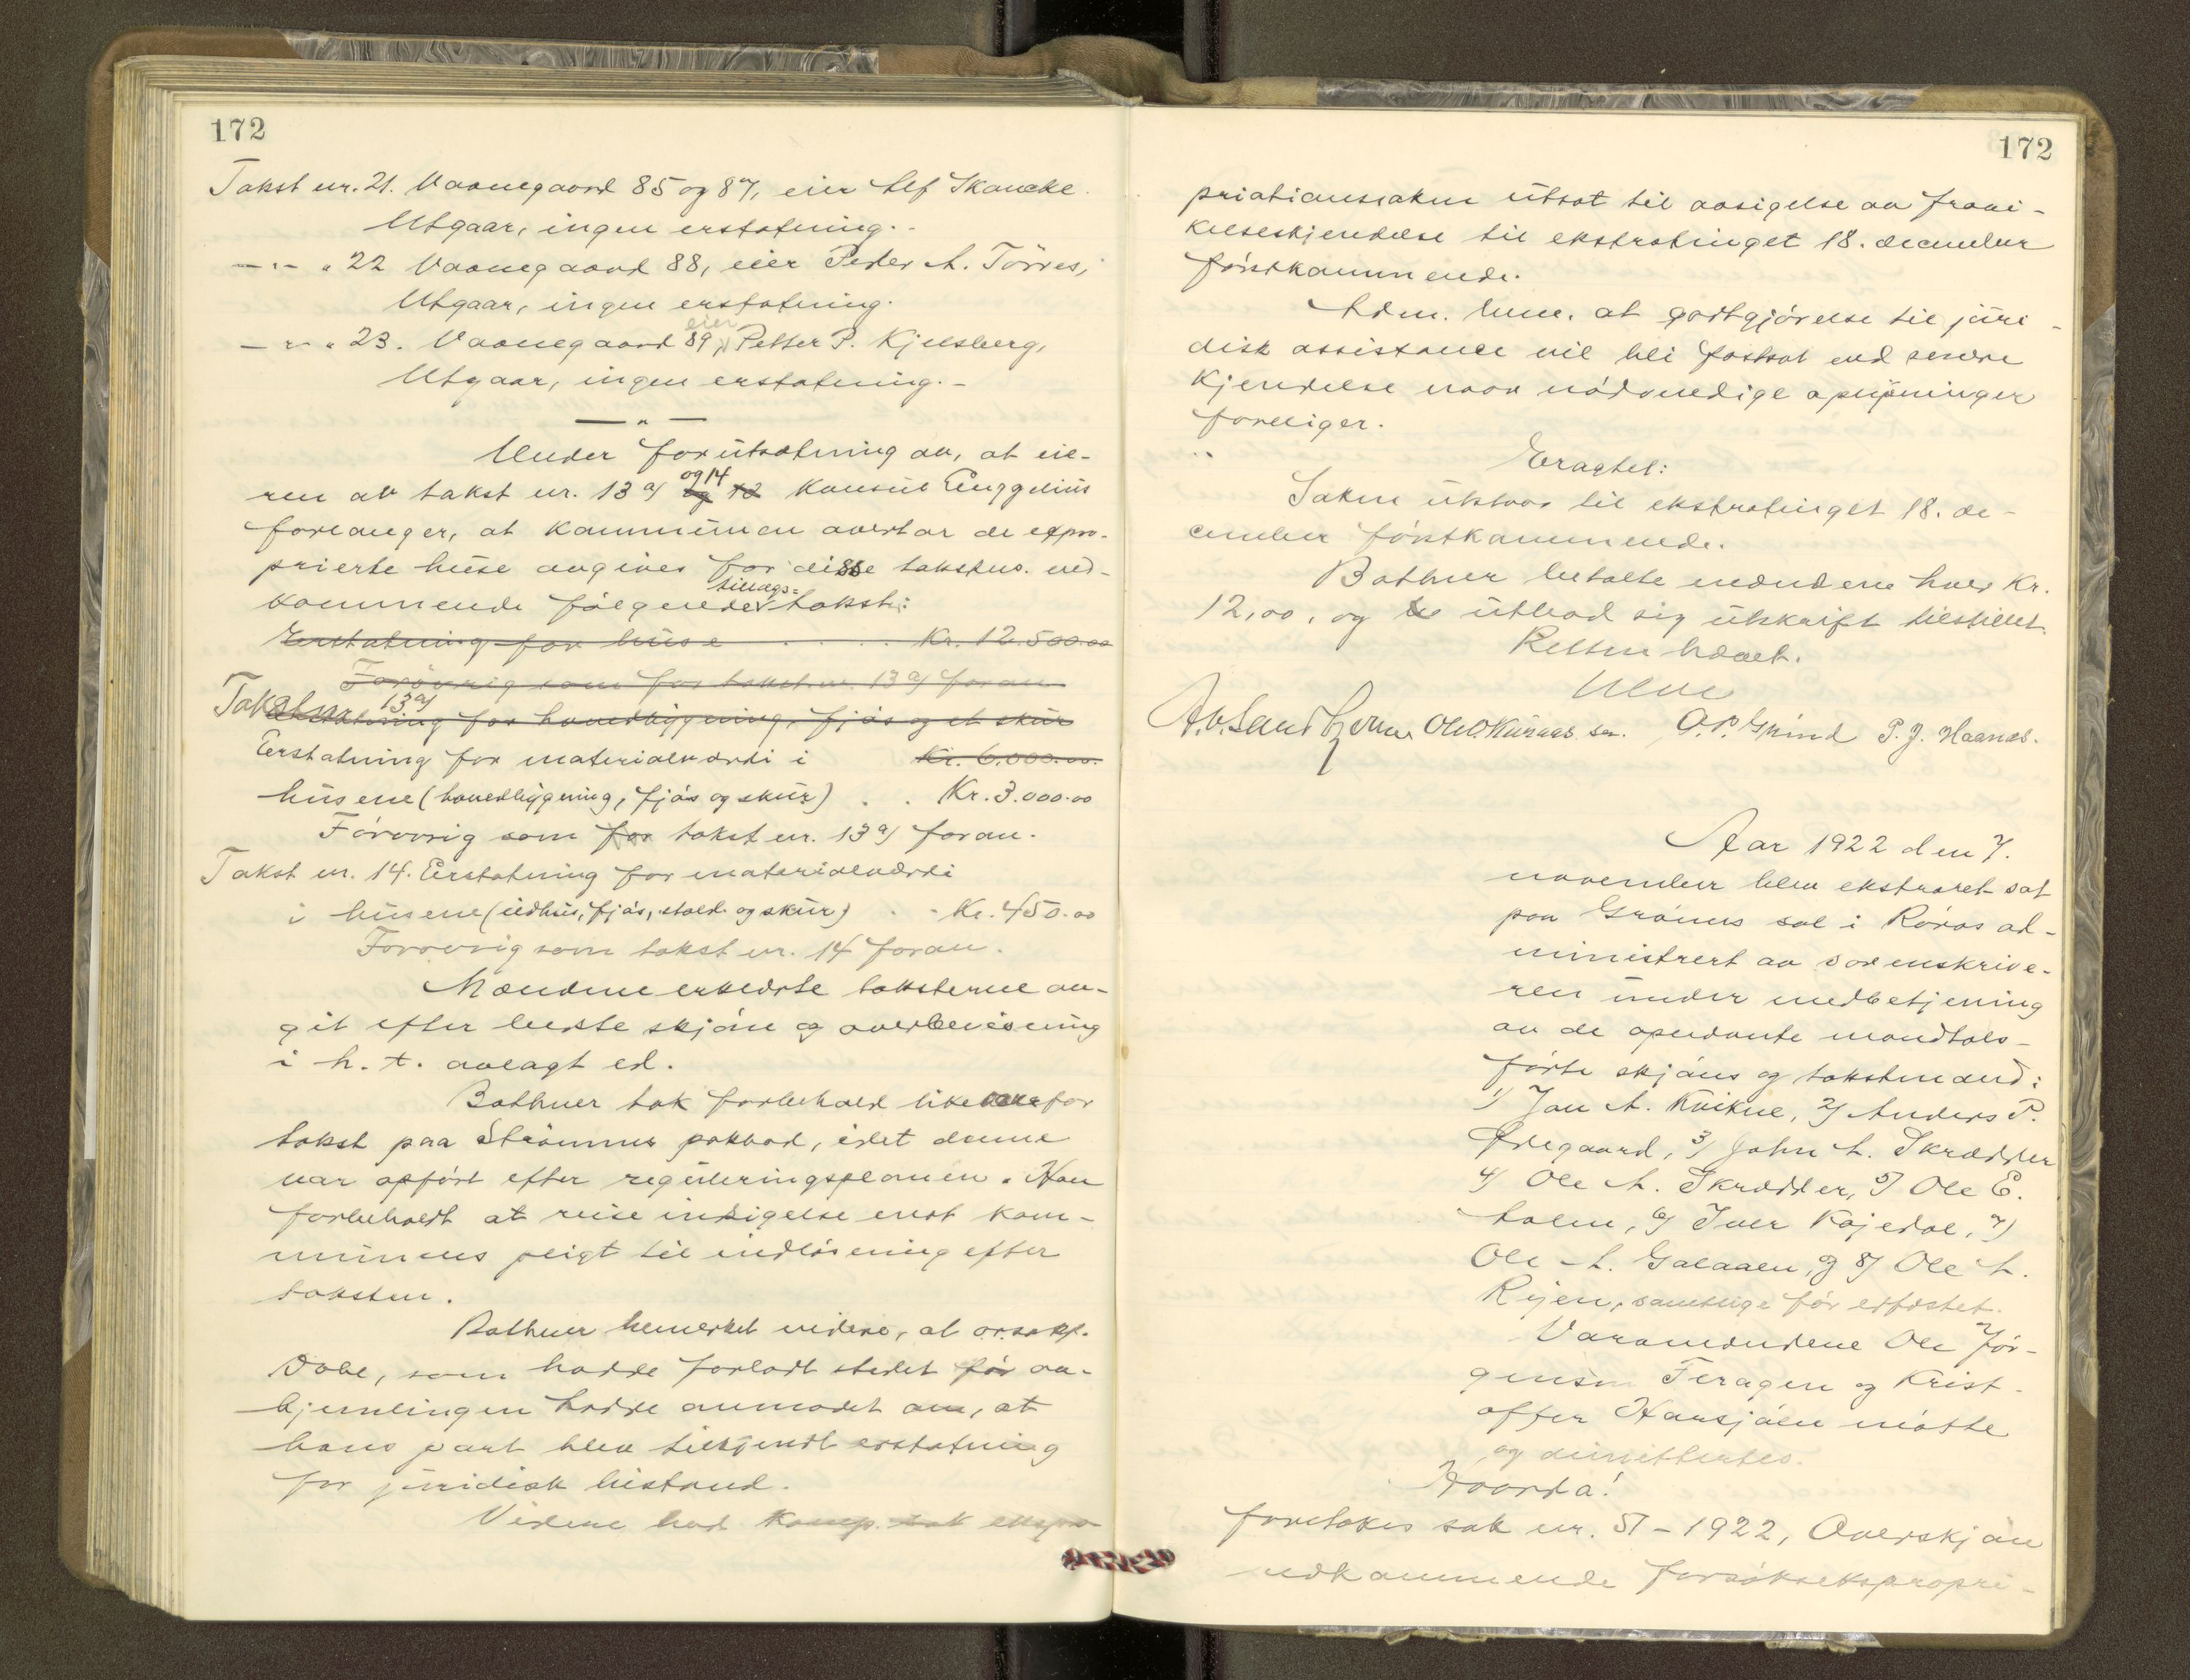 172
Takst nr. 21. Vaanegaard 85 og 87, eier Alf Skancke.
Utgaar, ingen erstatning.
— " — " 22 Vaanegaard 88, eier Peder A. Törres,
Utgaar, ingen erstatning.
eier
— " — " 23. Vaanegaard 89, Petter P. Kjelsberg,
Utgaar, ingen erstatning. –
— " —
Under forutsætning av, at eie-
og 14
ren av takst nr. 13 a/ og 12 Konsul Engzelius
forlanger, at kommunen overtar de expro-
prierte huse avgives for disse takstnr. ved-
tillægs-
kommende følgende takst:
Erstatning for huse . . . . Kr. 12.500.00
Forøvrig som for takst nr. 13 a/ foran
13 a/
Takst nr.
Erstatning for hovedbygning, fjøs og et skur
Erstatning for materialværdi i Kr. 6.000.00.
husene (hovedbygning, fjøs og skur) . . Kr. 3.000.00
Forøvrig som for takst nr. 13 a/ foran.
Takst nr. 14. Erstatning for materialværdi
i husene (uthus, fjøs, stald og skur) . . Kr. 450.00
Forøvrig som takst nr. 14 foran.
Mændene erklærte taksterne av-
git efter bedste skjøn og overbevisning
i h. t. avlagt ed.
Bothner tok forbehold likeoverfor
takst paa Strømmes pakbod, idet denne
var opført efter reguleringsplanen. Han
forbeholdt at reise indsigelse mot kom-
munens pligt til indløsning efter
taksten.
Bothner bemerket videre, at o.r.sakf.
Dahl, som hadde forladt stedet før av-
hjemlingen hadde anmodet om, at
hans part blev tilkjendt erstatning
for juridisk bistand.
Videre bad Komp. sak expro
172
priationssaken utsat til avsigelse av fravi-
kelseskjendelse til ekstratinget 18. december
førstkommende.
Adm. bem. at godtgjørelse til juri-
disk assistance vil bli fastsat ved senere
kjendelse naar nødvendige oplysninger
foreligger.
Eragtet:
Saken utstaar til ekstratinget 18. de-
cember førstkommende.
Bothner betalte mændene hver kr.
12,00, og utbad sig utskrift tilstillet.
Retten hævet.
A. O. Sandhjem Ole O. Kuraas sen. O. P. Grind P. J. Haanæs.
Aar 1922 den 7.
november blev ekstraret sat
paa Grønns sal i Röros ad-
ministrert av sorenskrive-
ren under medbetjening
av de opnævnte mandtals-
førte skjøns og takstmænd:
1) Jon A. Kvikne, 2) Anders P.
Ødegaard, 3) John A. Skrædder
4) Ole A. Skrædder, 5) Ole E.
Holm, 6) Iver Kojedal, 7)
Ole A. Galaaen, og 8) Ole A.
Ryen, samtlige før edfæstet.
Varamændene Ole Jør-
gensen Feragen og Krist-
offer Harsjøen møtte
og dimittertes.
Hvorda!
foretokes sak nr. 51 – 1922, Overskjøn
vedkommende forsøksekspropri-